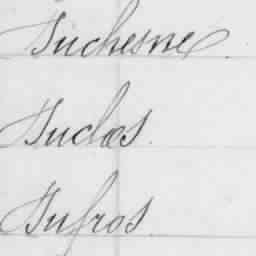 Duchesne.
Duclos.
Dufros